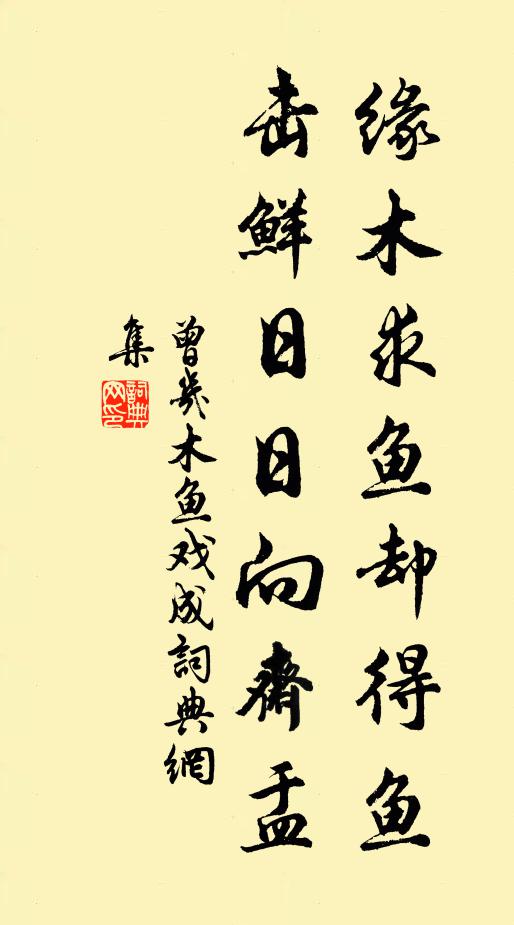 缘木求鱼却得鱼
击鲜日日向齋盂
曾几木鱼戏成詞典網
集
詞典網印